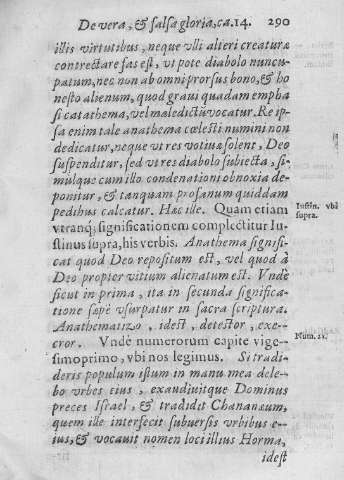 De vera, & falsa gloria, ca. 14. 290
illis virtutibus, neque vlli alteri creaturæ
contrectare fas est, vt pote diabolo nuncu-
patum, nec non ab omni prorsus bono, & ho
nesto alienum, quod graui quadam empha
si catathema, vel maledictũ vocatur. Re ip-
sa enim tale anathema cœlesti numini non
dedicatur, neque vt res votiua solent, Deo
suspenditur, sed vt res diabolo subiecta, si-
mulque cum illo condenationi obnoxia de-
ponitur, & tanquam profanum quiddam
pedibus calcatur. Hæc ille. Quam etiam
vtranq; significationem complectitur Iu-
stinus supra, his verbis. Anathema signifi-
cat quod Deo repositum est, vel quod à
Deo propter vitium alienatum est. Vndè
sicut in prima, ita in secunda significa-
tione sæpè vsurpatur in sacra scriptura.
Anathematizo, idest, detestor, exe-
cror. Vndè numerorum capite vige-
simoprimo, vbi nos legimus. Si tradi-
deris populum istum in manu mea dele-
bo vrbes eius, exaudiuitque Dominus
preces Israel, & tradidit Chananæum,
quem ille interfecit subuersis vrbibus e-
ius, & vocauit nomen loci illius Horma,
idest
Iustin. vbi
supra.
Num. 21.